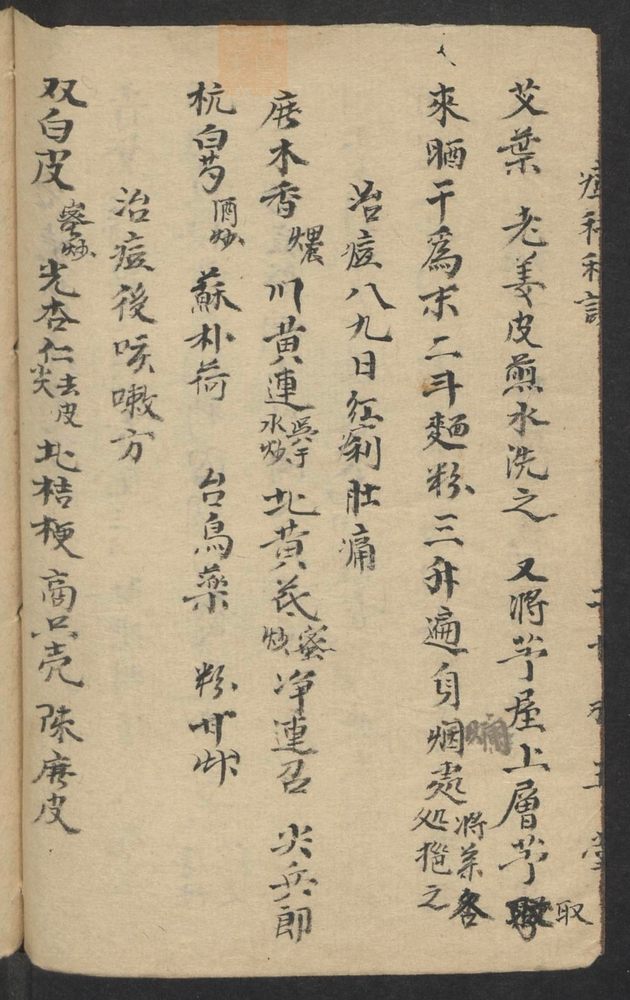 痘科秘訣
艾葉 老姜皮煎水洗之 又將茅屋上層茅取
來晒干為末二斗麵粉三升遍身烟處將菜各処拖之
治痘八九日紅痢肚痛
廣木香煨 川黄連吳于水炒 北黄芪蜜炒 净連召 尖兵郎
杭白芍酒炒 蘇朴荷 台烏藥 粉甘草
治痘後咳嗽方
双白皮蜜炒 光杏仁去皮尖 北桔梗 商只壳 陳廣皮